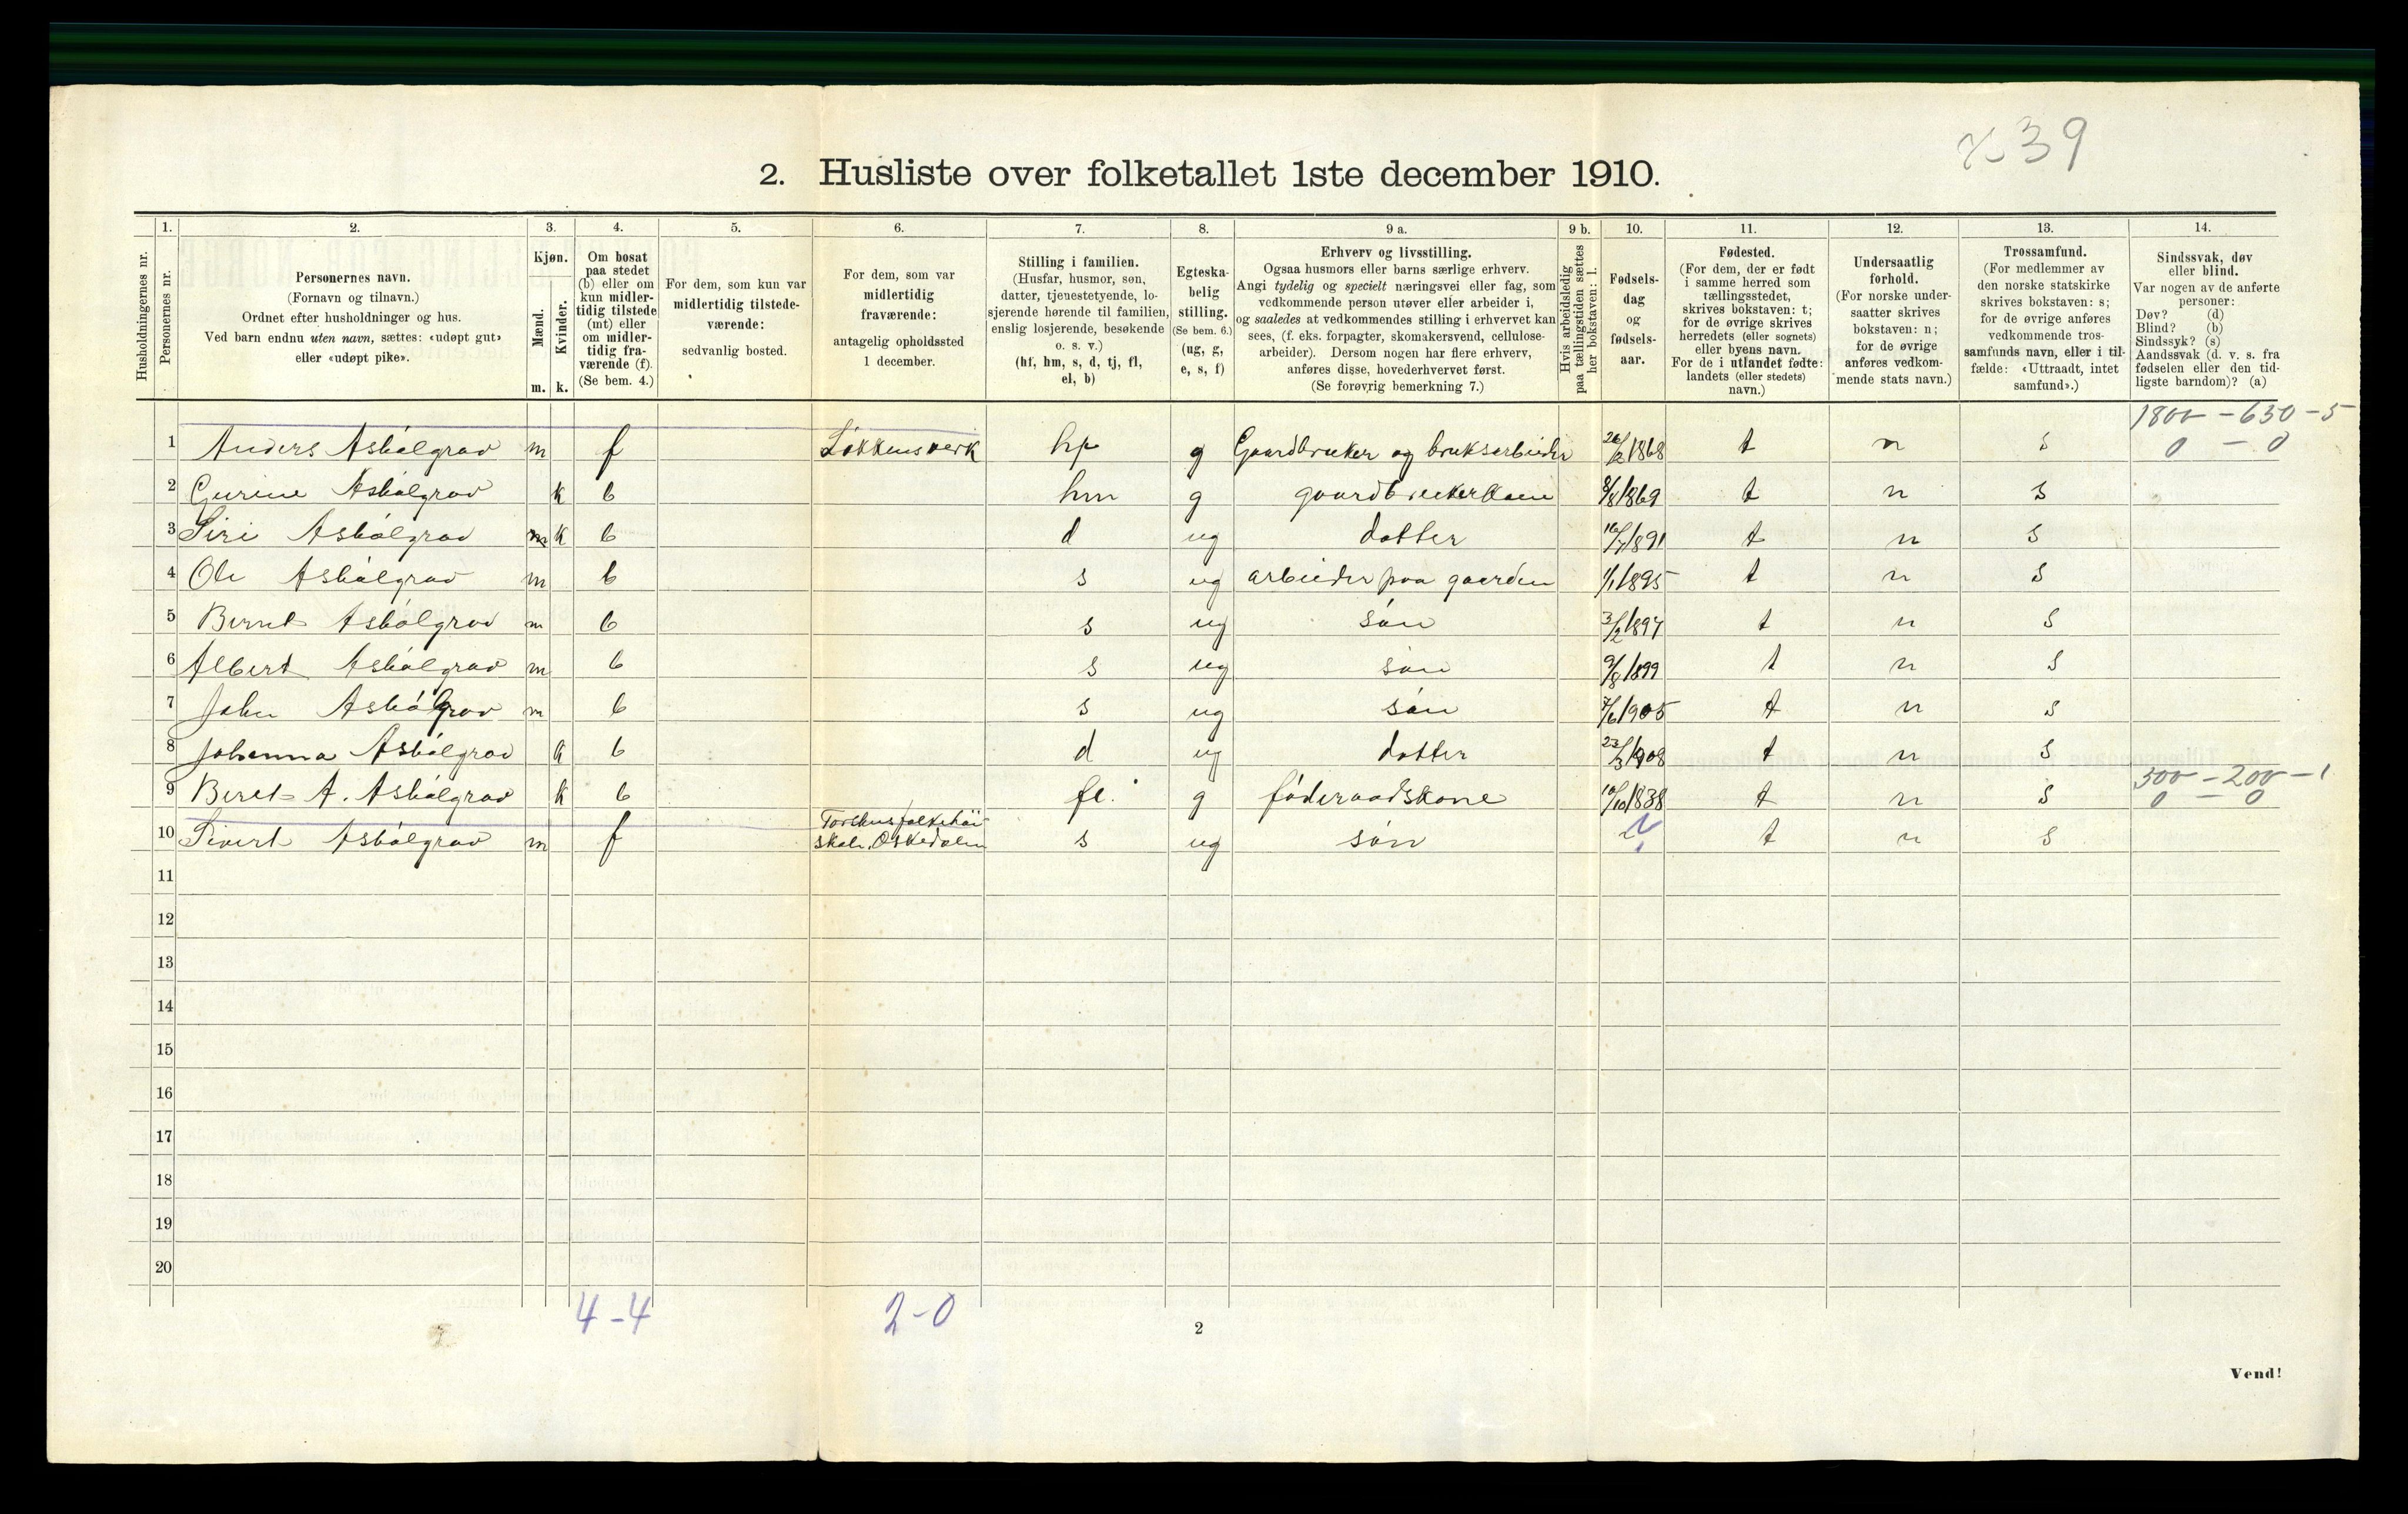 39
2. Husliste over folketallet 1ste december 1910.
Husholdningernes nr.
1. Personernes nr.
2. Personernes navn. (Fornavn og tilnavn.) Ordnet efter husholdninger og hus. Ved barn endnu uten navn, sættes: «udøpt gut» eller «udøpt pike».
3. Kjøn. Mænd. m. Kvinder. k.
4. Om bosat paa stedet (b) eller om kun midlertidig tilstede (mt) eller om midlertidig fraværende (f). (Se bem. 4.)
5. For dem, som kun var midlertidig tilstedeværende: sedvanlig bosted.
6. For dem, som var midlertidig fraværende: antagelig opholdssted 1 december.
7. Stilling i familien. (Husfar, husmor, søn, datter, tjenestetyende, losjerende hørende til familien, enslig losjerende, besøkende o. s. v.) (hf, hm, s, d, tj, fl, el, b)
8. Egteskabelig stilling. (Se bem. 6.) (ug, g, e, s, f)
9 a. Erhverv og livsstilling. Ogsaa husmors eller barns særlige erhverv. Angi tydelig og specielt næringsvei eller fag, som vedkommende person utøver eller arbeider i, og saaledes at vedkommendes stilling i erhvervet kan sees, (f. eks. forpagter, skomakersvend, cellulosearbeider). Dersom nogen har flere erhverv, anføres disse, hovederhvervet først. (Se forøvrig bemerkning 7.)
9 b. Hvis arbeidsledig paa tællingstiden sættes her bokstaven: l.
10. Fødselsdag og fødselsaar.
11. Fødested. (For dem, der er født i samme herred som tællingsstedet, skrives bokstaven: t; for de øvrige skrives herredets (eller sognets) eller byens navn. For de i utlandet fødte: landets (eller stedets) navn.)
12. Undersaatlig forhold. (For norske undersaatter skrives bokstaven: n; for de øvrige anføres vedkommende stats navn.)
13. Trossamfund. (For medlemmer av den norske statskirke skrives bokstaven: s; for de øvrige anføres vedkommende trossamfunds navn, eller i tilfælde: «Uttraadt, intet samfund».)
14. Sindssvak, døv eller blind. Var nogen av de anførte personer: Døv? (d) Blind? (b) Sindssyk? (s) Aandssvak (d. v. s. fra fødselen eller den tidligste barndom)? (a)
1800 - 650 - 5
1 Anders Asbølgrav m f Løkkensverk hf g Gaardbruker og bruksarbeider 26/2 1868 t n s 0 - 0
2 Gurine Asbølgrav k b hm g gaardbrukerkone 8/8 1869 t n s
3 Siri Asbølgrav k b d ug datter 16/7 1891 t n s
4 Ole Asbølgrav m b s ug arbeider paa gaarden 1/1 1895 t n s
5 Bernt Asbølgrav m b s ug søn 3/2 1897 t n s
6 Albert Asbølgrav m b s ug søn 9/8 1899 t n s
7 John Asbølgrav m b s ug søn 7/6 1905 t n s
8 Johanna Asbølgrav k b d ug datter 23/3 1908 t n s
500 - 200 - 1
9 Beret A. Asbølgrav k b fl. g føderaadskone 10/10 1838 t n s 0 - 0
10 Sivert Asbølgrav m f Torshus folkehøiskole, Orkedalen s ug søn t n s
11
12
13
14
15
16
17
18
19
20
4 - 4 2 - 0
2
Vend!